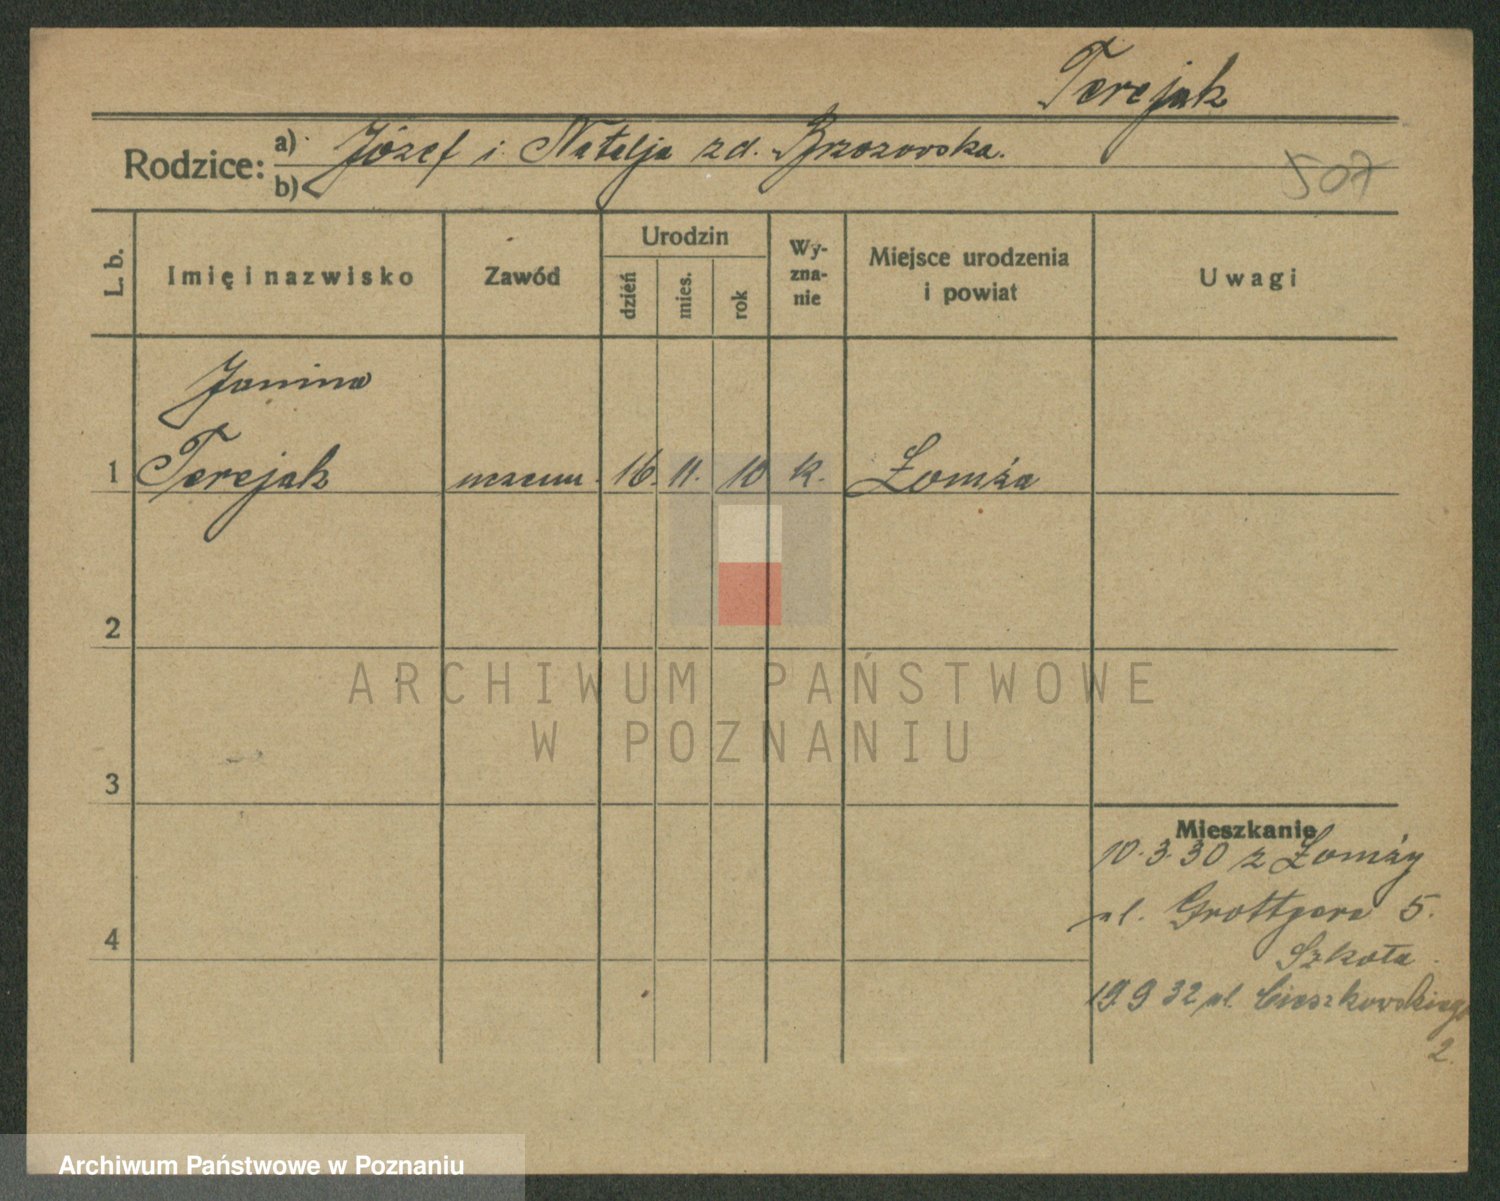 Terejak
Rodzice:
a) Józef i Natalja zd. Brzozowska.
b)
507
L. b.
Imię i nazwisko
Zawód
Urodzin
dzień
mies.
rok
Wy-
zna-
nie
Miejsce urodzenia
i powiat
Uwagi
Janina
1 Terejak 16. 11. 10 k. Łomża
2
ARCHIWUM PAŃSTWOWE
W POZNANIU
3
Mieszkanie
10.3.30 z Łomży
ul. Grottgera 5.
Szkoła
4
19.9 32 ul. Cieszkowskiego
2.
Archiwum Państwowe w Poznaniu